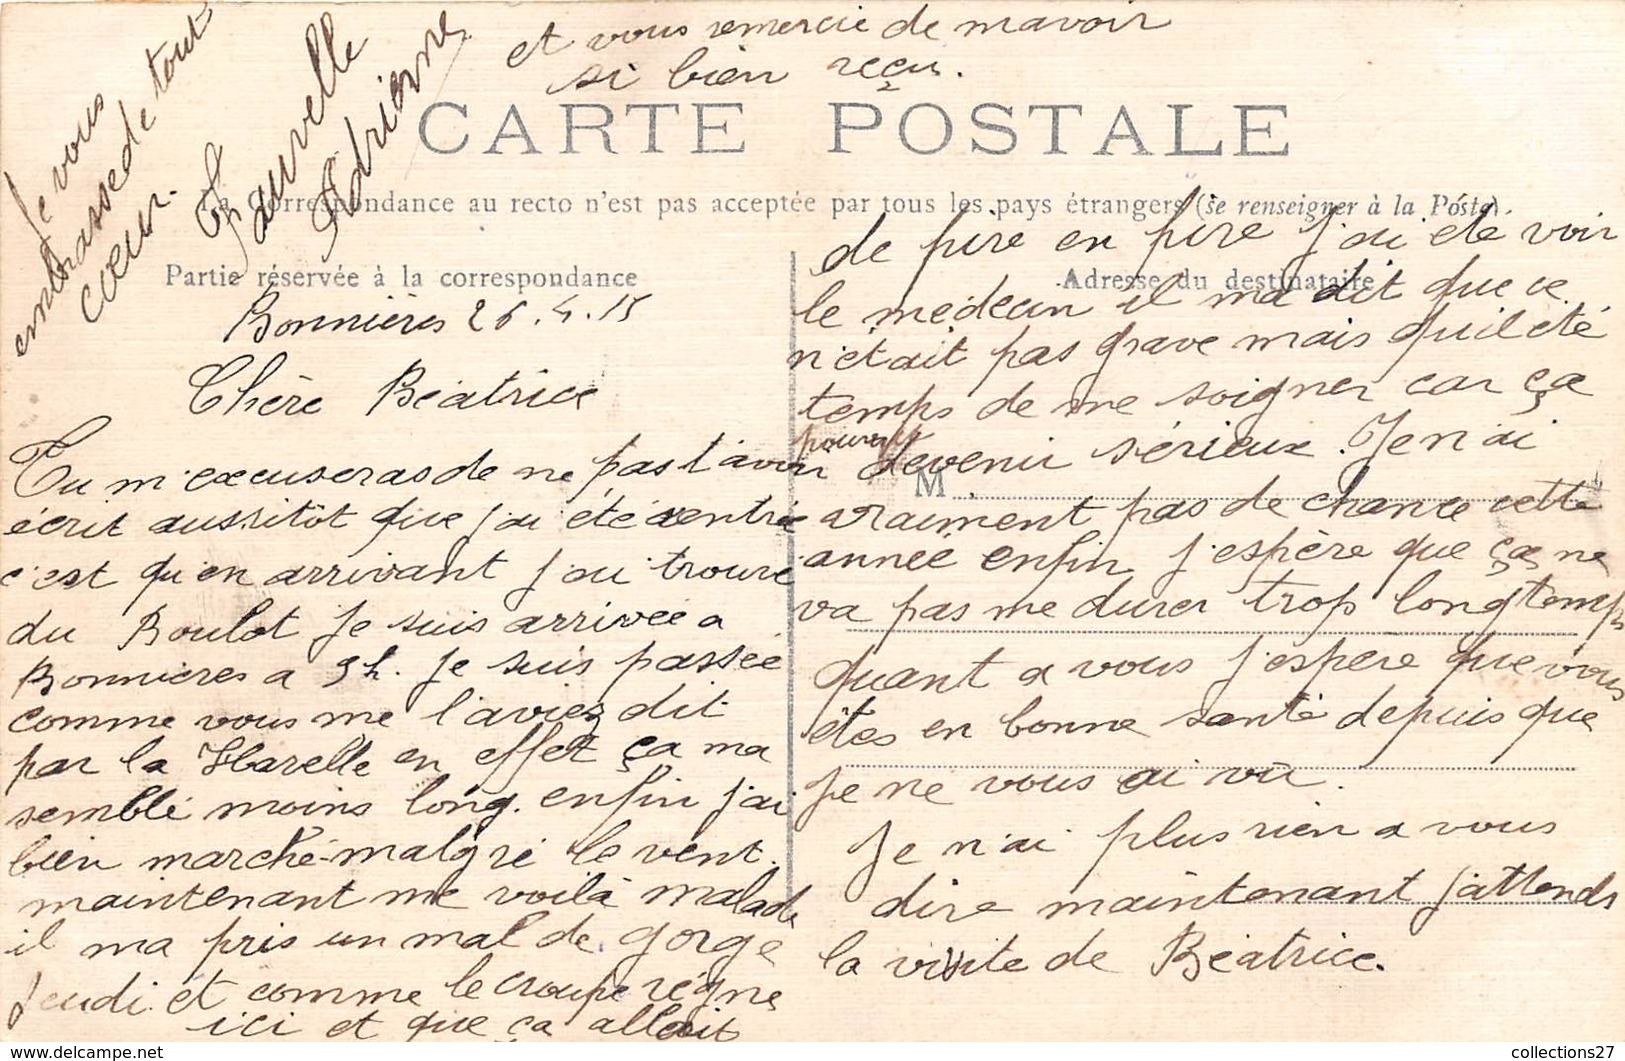 et vous remercie de mavoir
si bien reçu.
Je vous
embrasse de tout
cœur.
Fauvelle
Adrienne
CARTE POSTALE
La Correspondance au recto n'est pas acceptée par tous les pays étrangers (se renseigner à la Poste).
Partie réservée à la correspondance
Adresse du destinataire
Bonnières 26.4.15
Chère Béatrice
Tu m'excuseras de ne pas t'avoir
écrit aussitôt que j'ai été rentré
c'est qu'en arrivant j'ai trouvé
du Boulot Je suis arrivée a
Bonnieres a 9h. Je suis passée
comme vous me l'aviez dit
par la Harelle en effet ça ma
semblé moins long. enfin j'ai
bien marché malgré le vent.
maintenant me voilà malade
il ma pris un mal de gorge
Jeudi. et comme le croupe règne
ici et que ça allait
de pire en pire j'ai été voir
le médecin il ma dit que ce
n'était pas grave mais qu'il été
temps de me soigner car ça
pouvait devenir sérieux. Je n'ai
M
vraiment pas de chance cette
année enfin j'espère que ça ne
va pas me durer trop longtemps
quant a vous j'espere que vous
êtes en bonne santé depuis que
je ne vous ai vu.
Je n'ai plus rien a vous
dire maintenant j'attends
la visite de Béatrice.
collections27